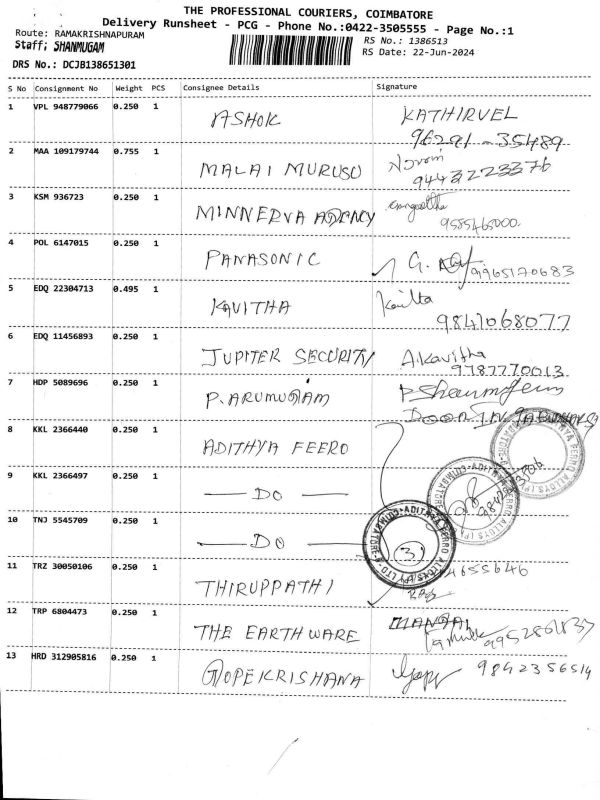 THE PROFESSIONAL COURIERS, COIMBATORE
Delivery Runsheet - PCG - Phone No.:0422-3505555 - Page No.:1
Route: RAMAKRISHNAPURAM
RS No.: 1386513
Staff: SHANMUGAM
RS Date: 22-Jun-2024
DRS No.: DCJB138651301
S No Consignment No Weight PCS Consignee Details Signature
1 VPL 948779066 0.250 1 ASHOK KATHIRVEL
96291-35489
2 MAA 109179744 0.755 1 MALAI MURUSU
9443223376
3 KSM 936723 0.250 1 MINNERVA AGENCY
9585465000
4 POL 6147015 0.250 1 PANASONIC G. 9965170683
5 EDQ 22304713 0.495 1 KAVITHA Kavitha
9841068077
6 EDQ 11456893 0.250 1 JUPITER SECURITY A.Kavitha
9787770013
7 HDP 5089696 0.250 1 P. ARUMUGAM P Shanmugam
8 KKL 2366440 0.250 1 ADITHYA FEERO
9 KKL 2366497 0.250 1 — DO —
10 TNJ 5545709 0.250 1 — DO —
ADITHYA FERRO ALLOYS (P) LTD
COIMBATORE
11 TRZ 30050106 0.250 1 THIRUPPATHI 4655646
12 TRP 6804473 0.250 1 THE EARTHWARE MANGAI
13 HRD 312905816 0.250 1 GOPEKRISHANA 9842356514